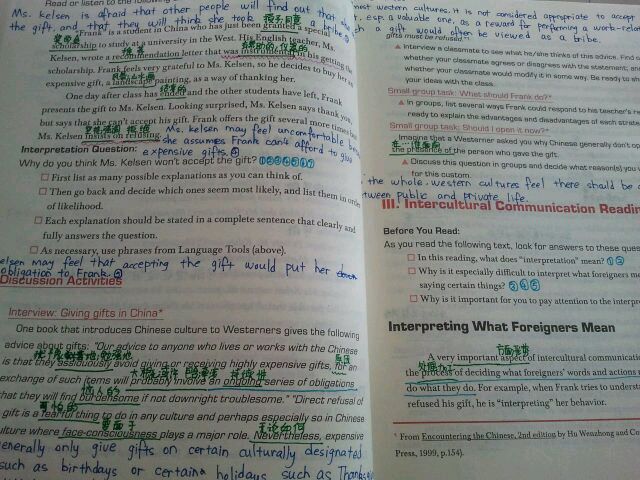 Read or listen to the
Ms. Kelsen is afraid that other people will find out that she
the gift, and that they will think she took a bribe
Frank is a student in China who has just been granted a special
scholarship to study at a university in the West. His English teacher, Ms.
Kelsen, wrote a recommendation letter that was instrumental in his getting the
scholarship. Frank feels very grateful to Ms. Kelsen, so he decides to buy her an
风景/山水画
expensive gift, a landscape painting, as a way of thanking her.
One day after class has ended and the other students have left, Frank
presents the gift to Ms. Kelsen. Looking surprised, Ms. Kelsen says thank you,
but says that she can't accept his gift. Frank offers the gift several more times but
Ms. Kelsen insists on refusing. Ms. kelsen may feel uncomfortable be
she assumes Frank can't afford to give
Interpretation Question: expensive gifts
Why do you think Ms. Kelsen won't accept the gift?
□ First list as many possible explanations as you can think of.
□ Then go back and decide which ones seem most likely, and list them in order
of likelihood.
□ Each explanation should be stated in a complete sentence that clearly and
fully answers the question.
□ As necessary, use phrases from Language Tools (above).
elsen may feel that accepting the gift would put her
obligation to Frank.
Discussion Activities
Interview: Giving gifts in China*
One book that introduces Chinese culture to Westerners gives the following
advice about gifts: "Our advice to anyone who lives or works with the Chinese
is that they assiduously avoid giving or receiving highly expensive gifts, for an
exchange of such items will probably involve an ongoing series of obligations
恼人的
that they will find burdensome if not downright troublesome." "Direct refusal of
gift is a fearful thing to do in any culture and perhaps especially so in Chinese
爱面子 无论如何
culture where face-consciousness plays a major role. Nevertheless, expensive
generally only give gifts on certain culturally designated
such as birthdays or certain holidays such as Thanks
most western cultures. it is not considered appropriate to accept
t. esp. a valuable one, as a reward for performing a work-relat
ch a gift would often be viewed as a bribe.
gifts must be
▲ Interview a classmate to see what he/she thinks of this advice. Find o
whether your classmate agrees or disagrees with the statement; an
whether your classmate would modify it in some way. Be ready to sh
your ideas with the class.
Small group task: What should Frank do?*
▲ In groups, list several ways Frank could respond to his teacher's re
ready to explain the advantages and disadvantages of each strate
Small group task: Should I open it now?*
Imagine that a Westerner asked you why Chinese generally don't op
the presence of the person who gave the gift.
▲ Discuss this question in groups and decide what reason(s) you w
for this custom.
the whole. western cultures feel there should be a
tween public and private life.
III. Intercultural Communication Readin
Before You Read:
As you read the following text, look for answers to these ques
□ In this reading, what does "interpretation" mean? ①②
□ Why is it especially difficult to interpret what foreigners mea
saying certain things? ③④⑤
□ Why is it important for you to pay attention to the interpret
Interpreting What Foreigners Mean
A very important aspect of intercultural communicatio
the process of deciding what foreigners' words and actions m
do what they do. For example, when Frank tries to underst
refused his gift, he is "interpreting" her behavior.
* From Encountering the Chinese, 2nd edition by Hu Wenzhong and Co
Press, 1999, p.154).